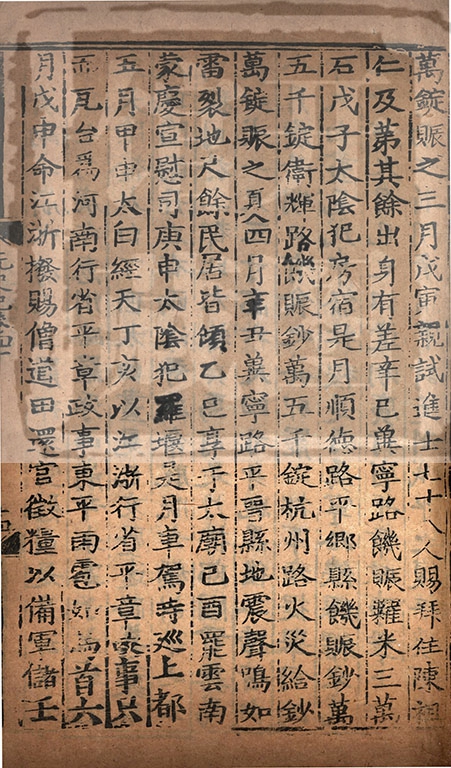 萬錠賑之三月戊寅親試進士七十八人賜拜住陳祖
仁及第其餘出身有差辛巳冀寧路饑賑糶米三萬
石戊子太陰犯房宿是月順德路平鄉縣饑賑鈔萬
五千錠衛輝路饑賑鈔萬五千錠杭州路火災給鈔
萬錠賑之夏四月辛丑冀寧路平晉縣地震聲鳴如
雷裂地尺餘民居皆傾乙巳享于太廟己酉罷雲南
蒙慶宣慰司庚申太陰犯羅堰是月車駕時巡上都
五月甲申太白經天丁亥以江浙行省平章政事只
而瓦台為河南行省平章政事東平雨雹如馬首六
月戊申命江浙撥賜僧道田還官徵糧以備軍儲壬